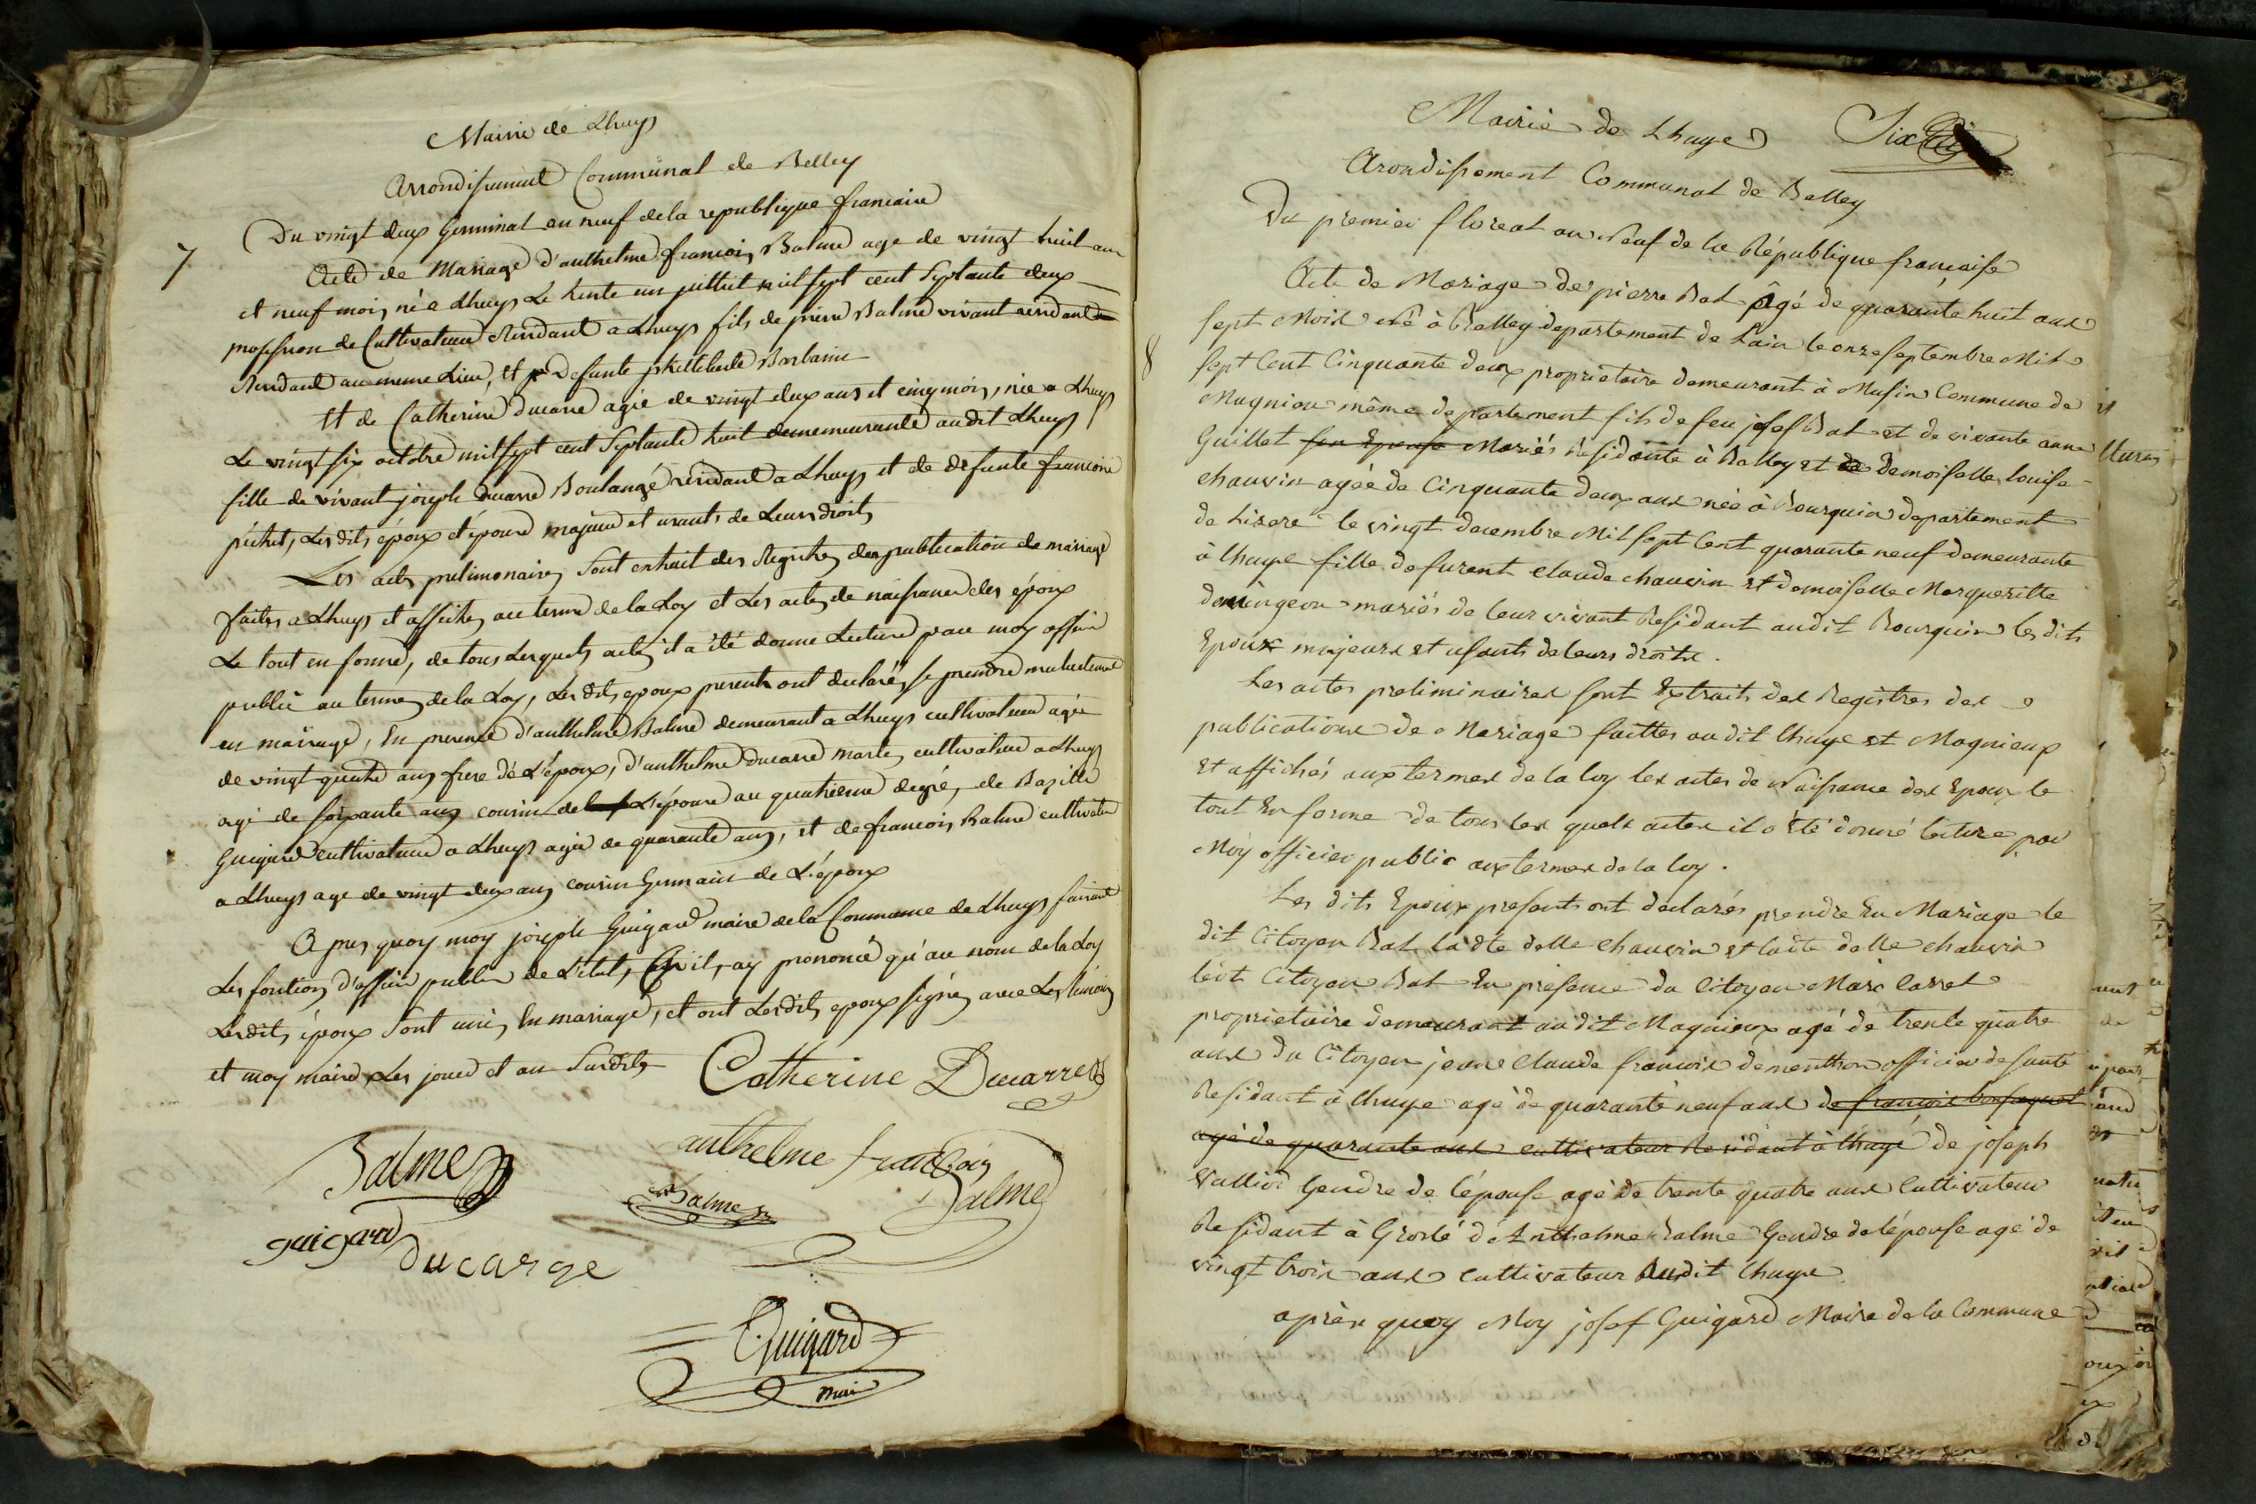 Mairie de Lhuys
Arrondissement Communal de Belley
7
Du vingt deux Germinal an neuf de la republique francaise
Acte de Mariage d'anthelme francois Balme age de vingt huit ans
et neuf mois né a Lhuys Le trente un juillet mil sept cent Septante deux
profession de Cultivateur Residant a Lhuys fils de pierre Balme vivant residant
Residant au meme Lieu, et de Defunte Barbaire
Et de Catherine ducarre agée de vingt deux ans et cinq mois, née a Lhuys
Le vingt six octobre mil sept cent Septante huit demeurante audit Lhuys
fille de vivant joseph ducarre Boulangé résidant a Lhuys et de defunte francoise
péchet, Les dits époux et épouse majeurs et usants de Leurs droits
Les actes prelimonaires Sont extrait des Registres des publication de mariage
faites a Lhuys et affiches au terme de la Loy et Les actes de naissance des époux
Le tout en forme, de tous Lesquels actes il a été donne Lecture par moy officier
public au termes de la Loy, Les dits epoux presents ont declarés se prendre mutuelement
en mariage, En presence d'anthelme Balme demeurant a Lhuys cultivateur agée
de vingt quatre ans frere dé L'époux, d'anthelme Ducarre marte cultivateur a Lhuys
agé de soixante ans cousin de L'épouse au quatrieme degré, de Bazille
Guigard cultivateur a Lhuys agée de quarante ans, et de francois Balme cultivateur
a Lhuys age de vingt deux ans cousin Germain de L'époux
Apres quoy moy joseph Guigard maire de la Commune de Lhuys faisant
Les fontions d'officier public de L'etat, Civil, ay prononcé qu'au nom de la Loy
Lesdits époux Sont unis En mariage, et ont Lesdits epoux signés avec Les témoins
et moy maire Les jours et an Susdits
Catherine Ducarre
Balme
anthelme francois
Balme
Balme
guigard
ducarre
Guigard
maire
Mairie de Lhuye
Six
Arondissement Communal de Belley
Du premier floreal an Neuf de la République française
8
Acte de Mariage de pierre Bal âgé de quarante huit ans
sept Mois Né à Belley departement de Lain le onze septembre Mil
sept Cent Cinquante deux proprietaire demeurant à Musin Commune de
Magnieu même departement fils de feu josef Bal et de vivante anne
Guillet son Epouse Mariés Résidante à Belley et de demoiselle louise
chauvin agée de Cinquante deux ans née à Bourguin departement
de Lizere le vingt decembre Mil sept Cent quarante neuf demeurante
à lhuye fille defurent claude chauvin et demoiselle Margueritte
domingeon mariés de leur vivant Residant audit Bourguin les dits
Epoux majeurs et usants de leurs droits.
Les actes preliminaires sont Extraits des Registres des
publications de Mariage faittes au dit lhuye et Magnieux
et affichés aux termes de la loy les actes de Naissance des Epoux le
tout En forme de tous les quels actes il a été donné lecture par
Moy officier public aux termes de la loy.
Les dits Epoux presents ont declarés prendre En Mariage le
dit Citoyen Bal la dte delle chauvin et ladte delle chauvin
ledt Citoyen Bal En presence du Citoyen Marc lassel
proprietaire demeurant audit Magnieux agé de trente quatre
ans du Citoyen jean Claude francois dementhon officier de santé
Residant à lhuye agé de quarante neuf ans de françois bonfaquet
agé de quarante ans cultivateur Residant à lhuye de joseph
Vallier Gendre de l'épouse agé de trente quatre ans Cultivateur
Residant à Groslé d'Anthelme Balme Gendre de l'épouse agé de
vingt trois ans cultivateur Audit lhuye
après quoy Moy josef Guigard Maire de la Commune